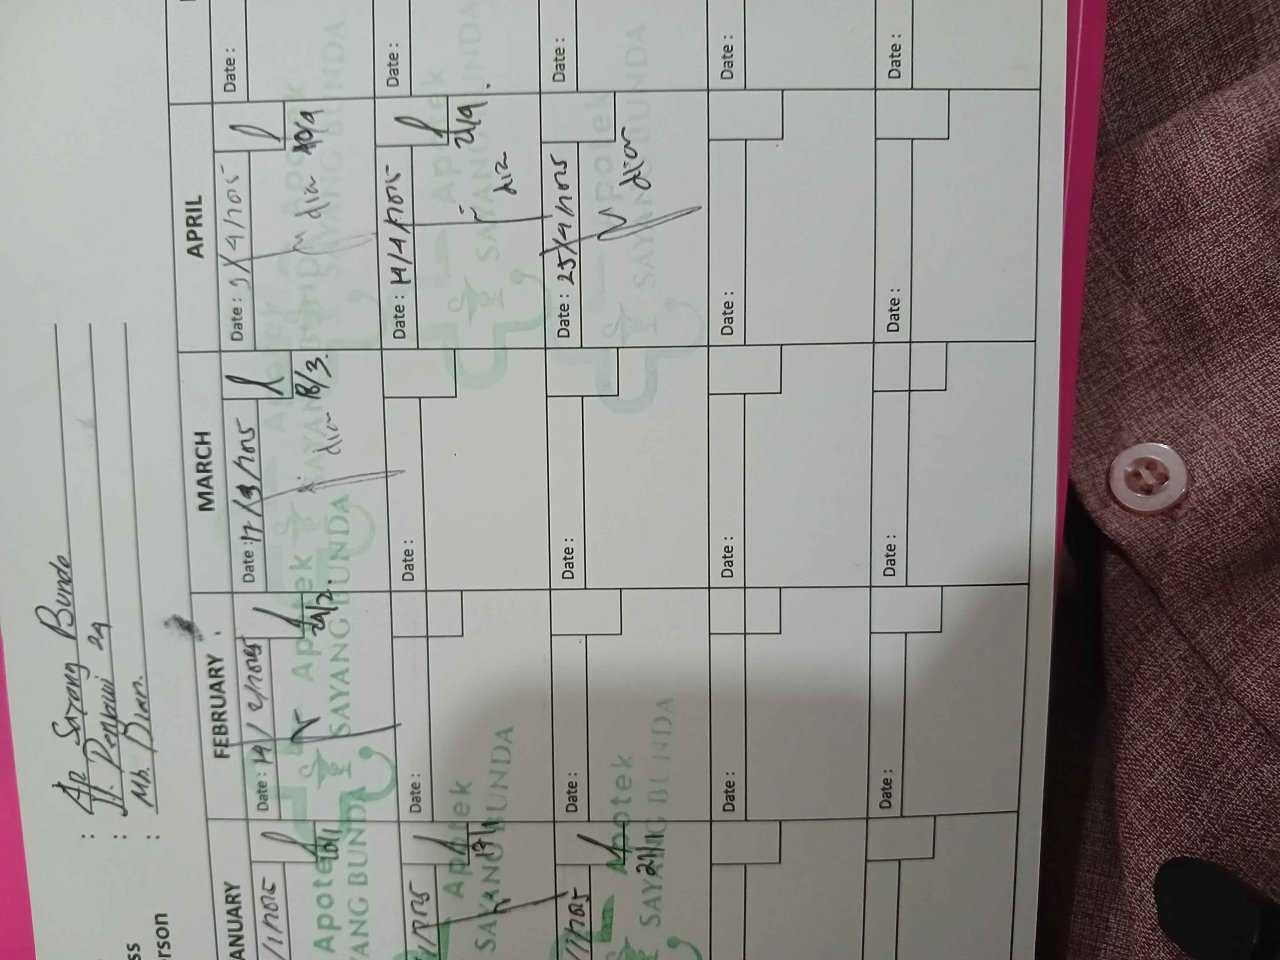 : Ap Sayang Bunda
ss : Jl. Penjawi 29
erson : Mb. Dian.
ANUARY
FEBRUARY
MARCH
APRIL
/1/2025
Date : 14/2/2025
Date : 17/3/2025
Date : 9/4/2025
Date :
Apotek
YANG BUNDA
Apotek
SAYANG BUNDA
24/2.
dian 18/3.
dian 10/4
Date :
Date :
Date : 14/4/2025
Date :
Apotek
SAYANG BUNDA
17/1
Apotek
SAYANG BUNDA
dian 21/4.
/1/2025
Date :
Date :
Date : 25/4/2025
Date :
Apotek
SAYANG BUNDA
21/1
Apotek
SAYANG BUNDA
dian
Date :
Date :
Date :
Date :
Date :
Date :
Date :
Date :